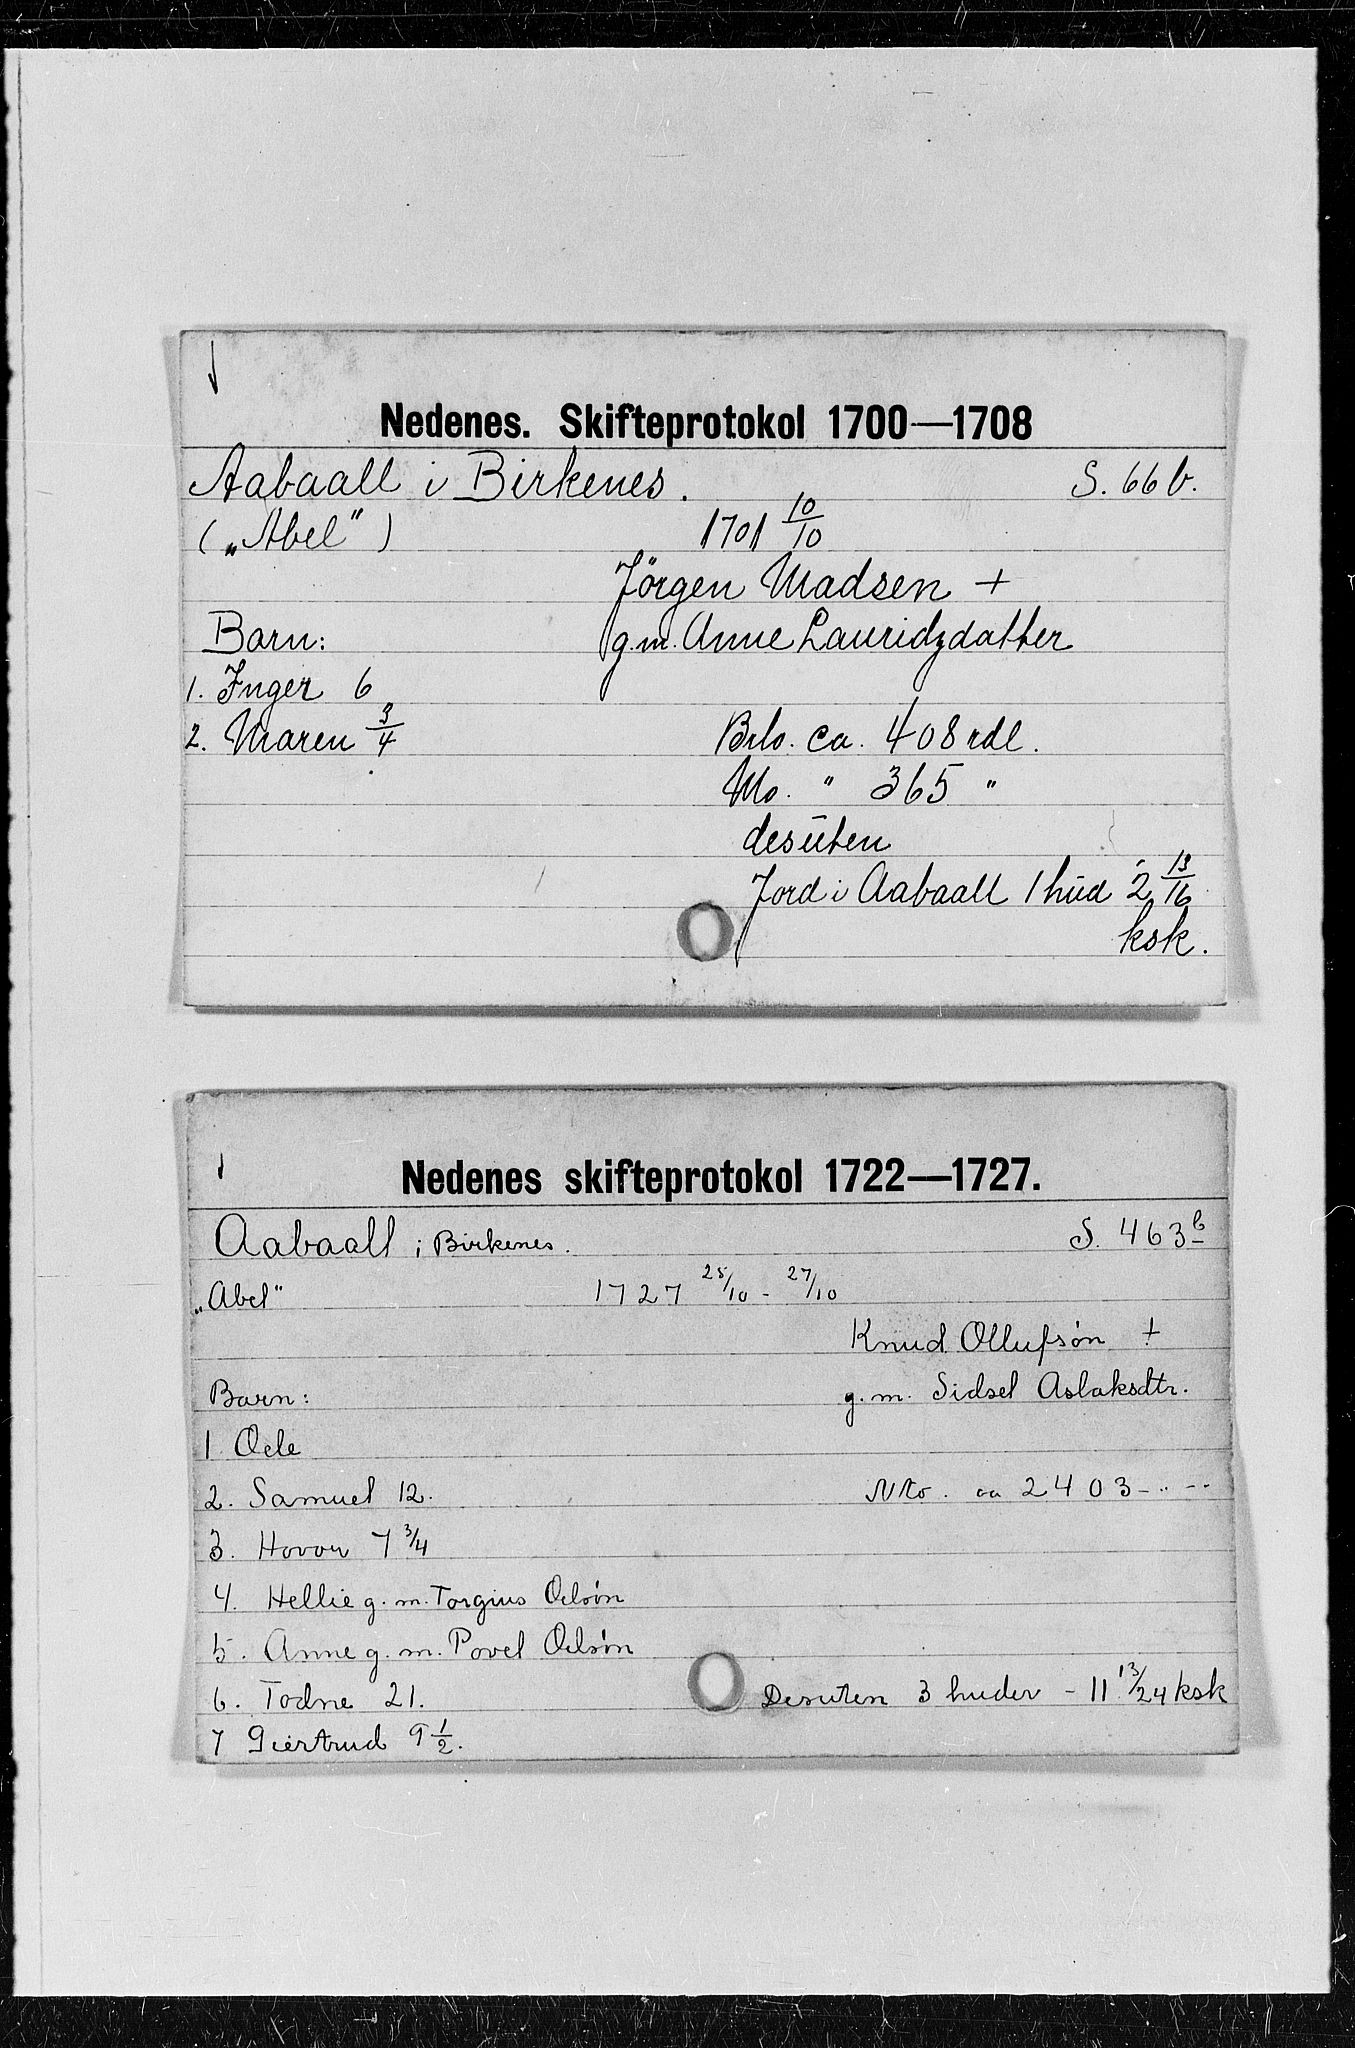 Nedenes. Skifteprotokol 1700—1708
Aabaall i Birkenes. S. 66 b.
(„Abel") 1701 10/10
Jörgen Madsen +
Barn: g.m. Anne Lauridzdatter
1. Inger 6
2. Maren 3/4 Brto. ca. 408 rdl.
Nto. " 365 "
desuten
Jord i Aabaall 1 hud 2 13/16
ksk.
Nedenes skifteprotokol 1722—1727.
Aabaall i Birkenes. S. 463 b
„Abel" 1727 25/10 - 27/10
Knud Ollufsön +
Barn: g. m. Sidsel Aslaksdtr.
1 Oele
2. Samuel 12. Nto. ca 2403-..--
3. Hovor 7 3/4
4. Hellie g. m. Torgius Oelsön
5. Anne g. m. Povel Oelsön
6. Todne 21. Desuten 3 huder - 11 13/24 ksk
7 Giertrud 9 1/2.